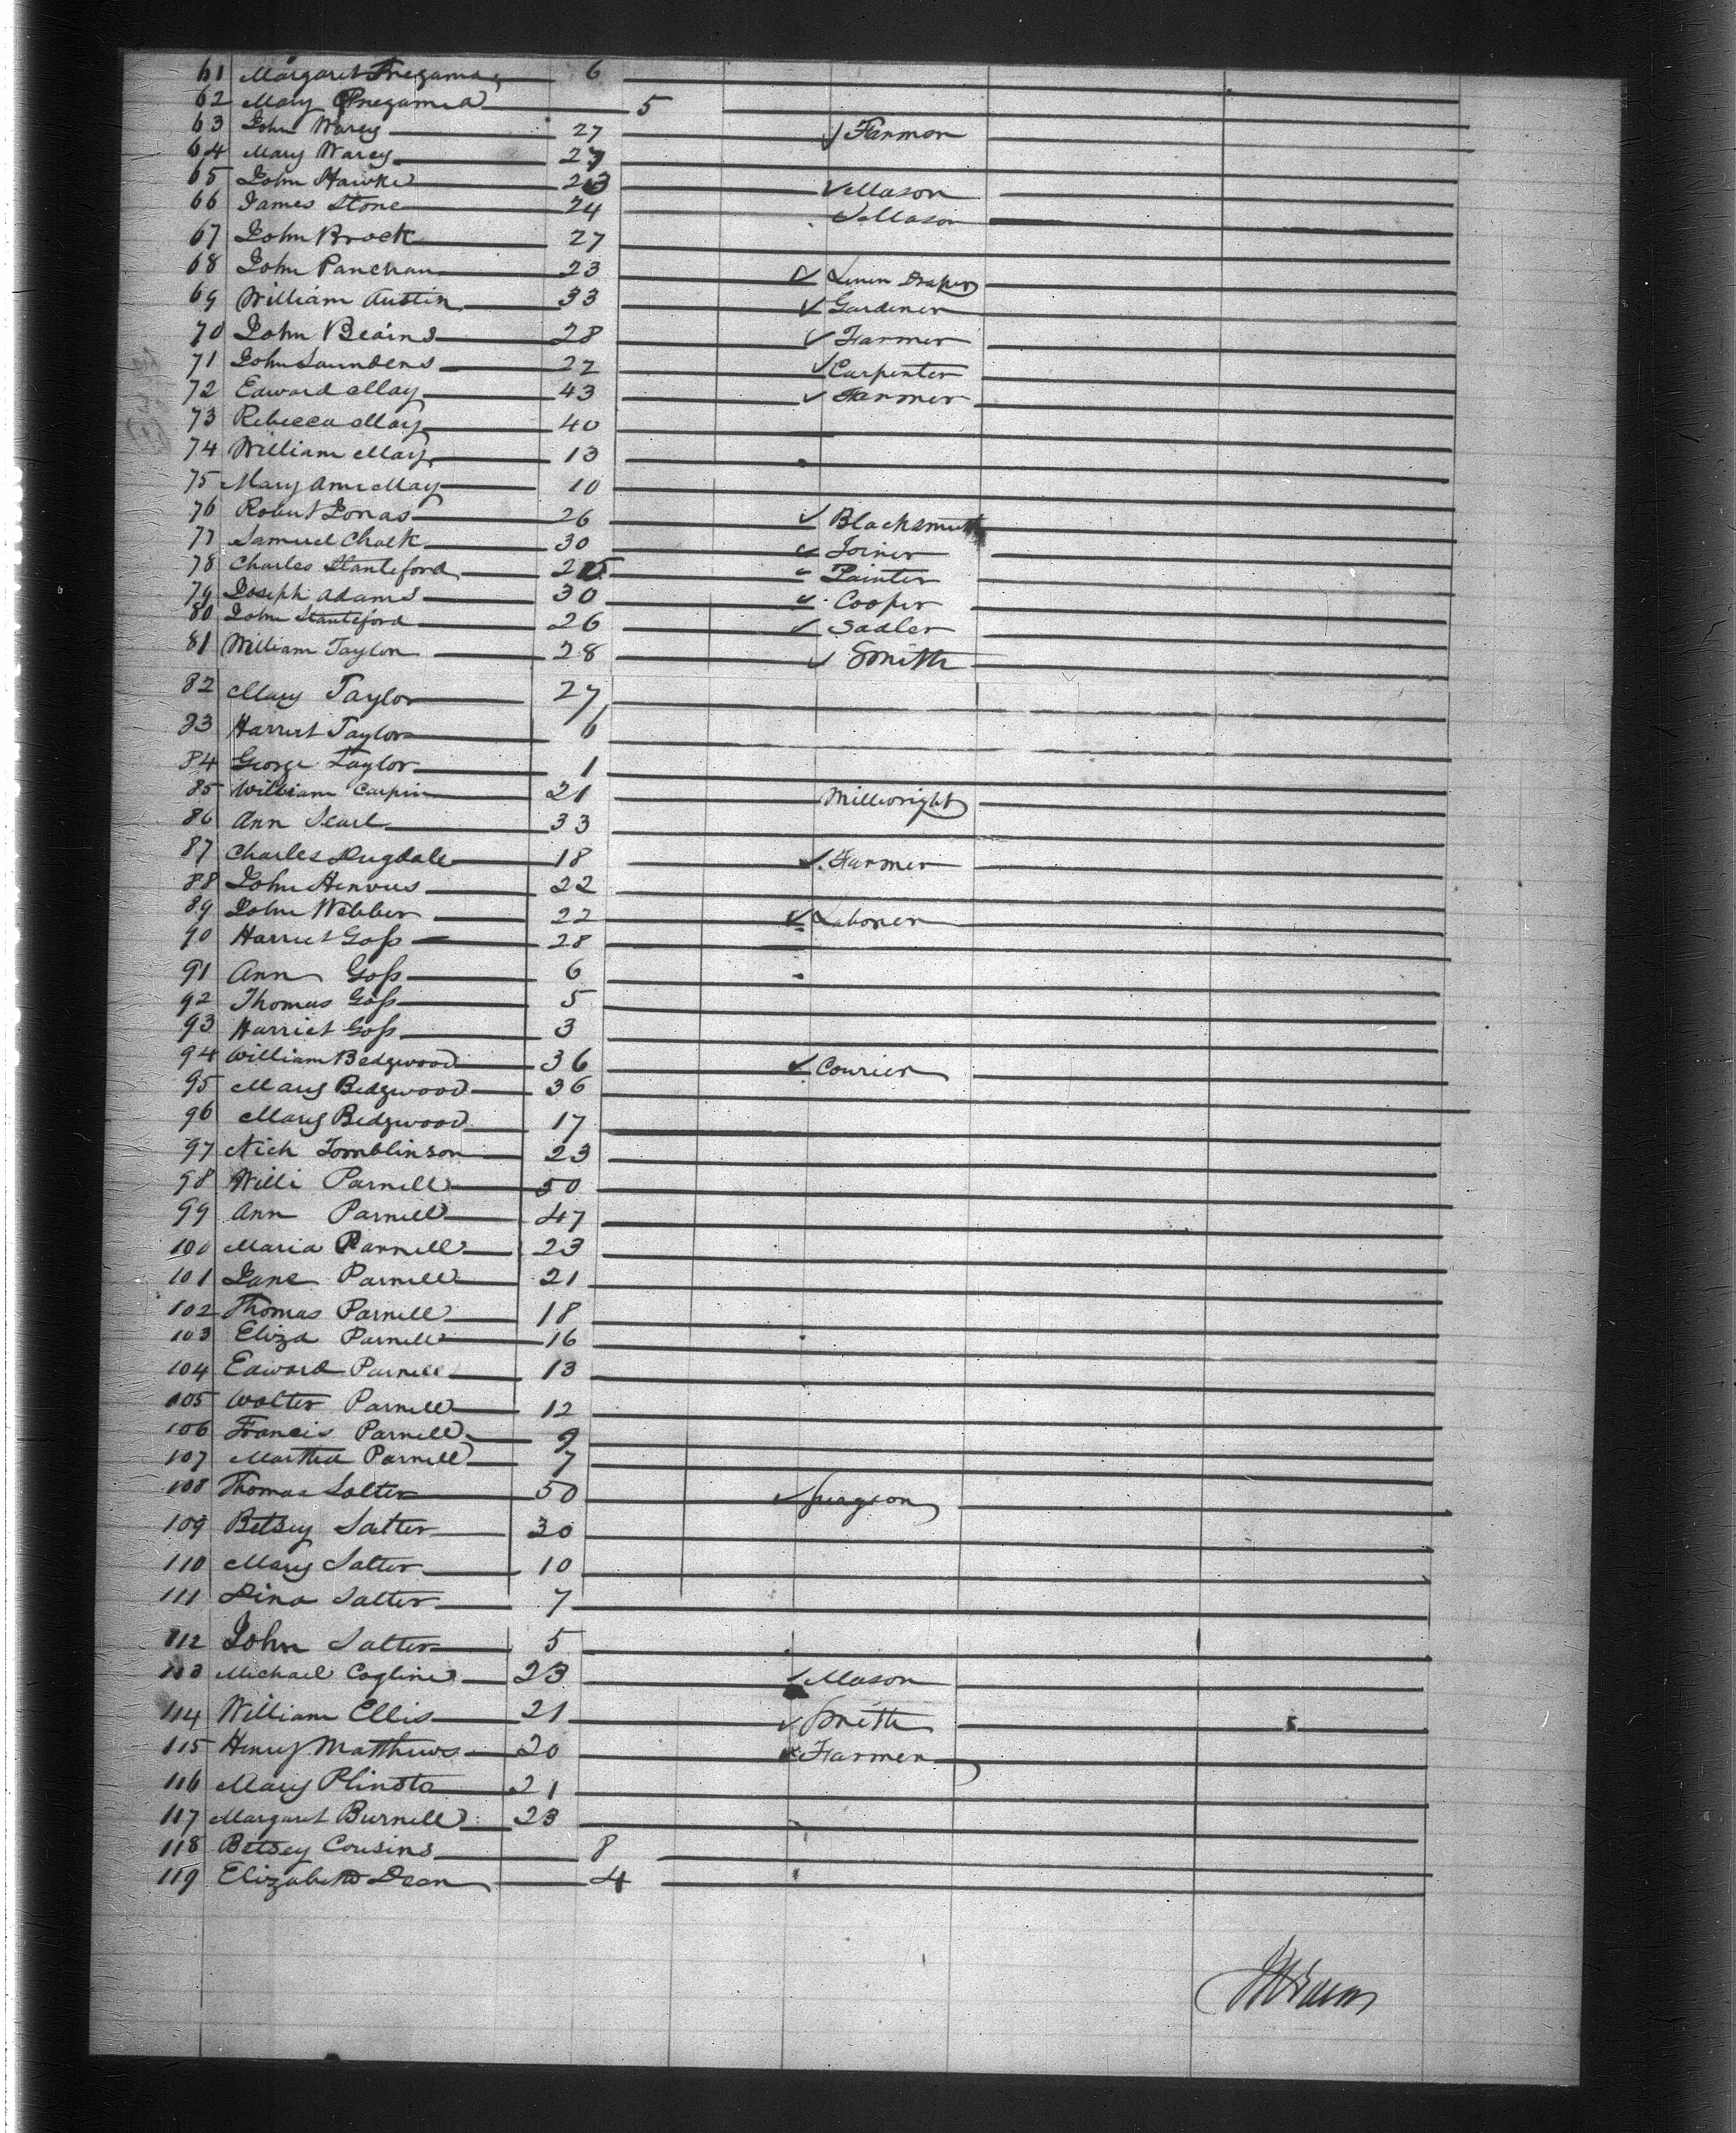 61 Margaret Tregama 6
62 Mary Pregamia 5
63 John Warey 27 Farmer
64 Mary Warey 27
65 John Hawke 23 Mason
66 James Stone 24 Mason
67 John Brock 27
68 John Panchan 23 Linen Draper
69 William Austin 33 Gardener
70 John Beains 28 Farmer
71 John Saunders 22 Carpenter
72 Edward May 43 Farmer
73 Rebecca May 40
74 William May 13
75 Mary Ann May 10
76 Robert Jonas 26 Blacksmith
77 Samuel Chalk 30 Joiner
78 Charles Stanteford 25 Painter
79 Joseph Adams 30 Cooper
80 John Stanteford 26 Sadler
81 William Taylor 28 Smith
82 Mary Taylor 27
83 Harriet Taylor 6
84 George Taylor 1
85 William Curpin 21 Millwright
86 Ann Searl 33
87 Charles Dugdale 18 Farmer
88 John Henvus 22
89 John Webber 22 Laborer
90 Harriet Goss 28
91 Ann Goss 6
92 Thomas Goss 5
93 Harriet Goss 3
94 William Bedgwood 36 Courier
95 Mary Bedgwood 36
96 Mary Bedgwood 17
97 Nich Tomblinson 23
98 Willi Parnell 50
99 Ann Parnell 47
100 Maria Parnell 23
101 Jane Parnell 21
102 Thomas Parnell 18
103 Eliza Parnell 16
104 Edward Parnell 13
105 Walter Parnell 12
106 Francis Parnell 9
107 Martha Parnell 7
108 Thomas Salter 50 Surgeon
109 Betsey Salter 30
110 Mary Salter 10
111 Dina Salter 7
112 John Salter 5
113 Michael Cogline 23 Mason
114 William Ellis 21 Smith
115 Henry Matthews 20 Farmer
116 Mary Plinsta 21
117 Margaret Burnell 23
118 Betsey Cousins 8
119 Elizabeth Dean 4